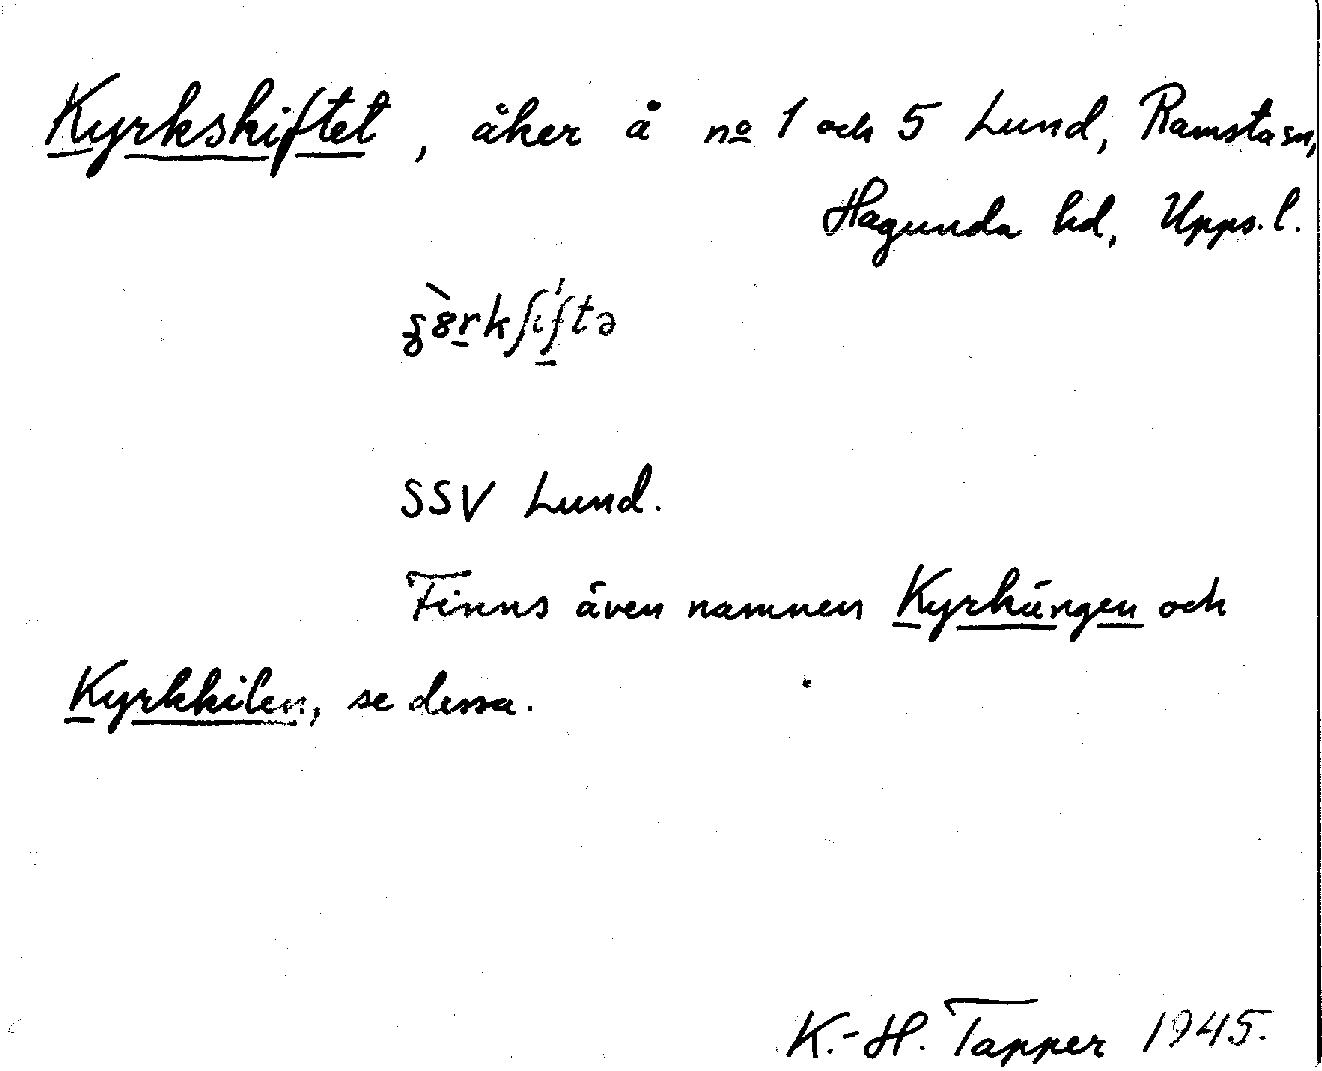 Kyrkskiftet, åker å no 1 och 5 Lund, Ramsta sn,
Hagunda hd, Upps. l.
SSV Lund.
Finns även namnen Kyrkängen och
Kyrkkilen, se dessa.
K.-H. Tapper 1945.